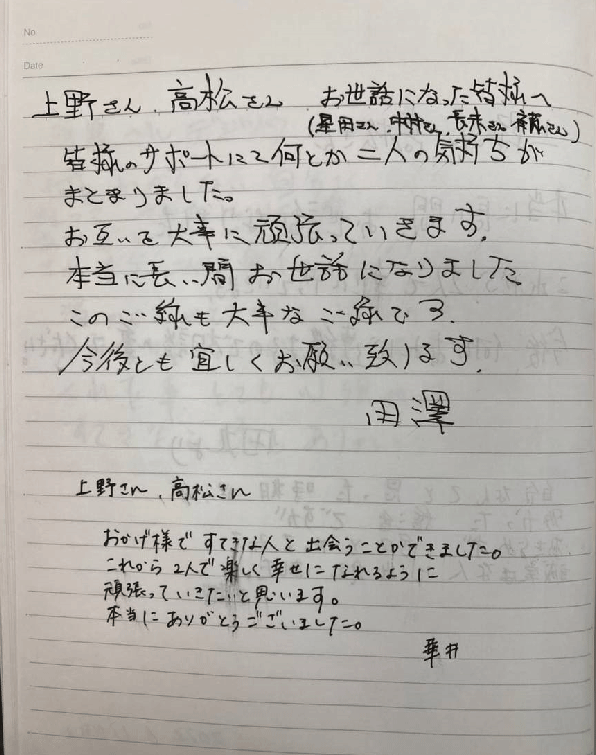 No.
Date
上野さん、高松さん お世話になった皆様へ
(星田さん、中村さん、長末さん、斉藤さん)
皆様のサポートにて何とか二人の気持ちが
まとまりました。
お互いを大事に頑張っていきます。
本当に長い間お世話になりました
このご縁も大事なご縁です。
今後とも宜しくお願い致します。
田澤
上野さん、高松さん
おかげ様ですてきな人と出会うことができました。
これから2人で楽しく幸せになれるように
頑張っていきたいと思います。
本当にありがとうございました。
華井